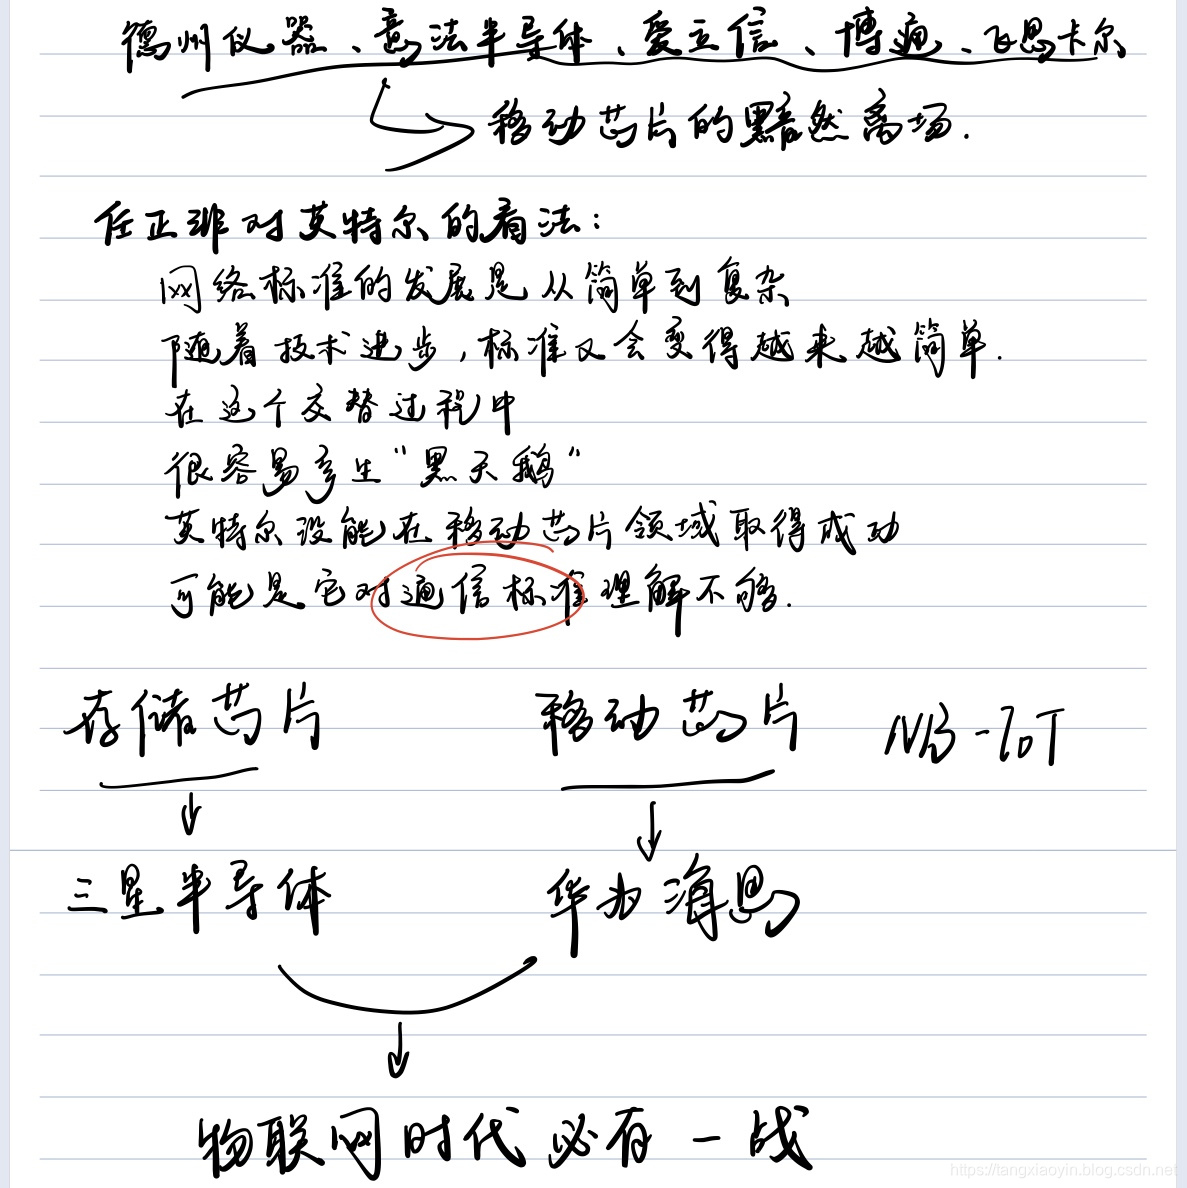 德州仪器、意法半导体、爱立信、博通、飞思卡尔
移动芯片的黯然离场.
任正非对英特尔的看法:
网络标准的发展是从简单到复杂
随着技术进步,标准又会变得越来越简单.
在这个交替过程中
很容易产生“黑天鹅”
英特尔没能在移动芯片领域取得成功
可能是它对通信标准理解不够.
存储芯片 移动芯片 NB-IoT
三星半导体 华为海思
物联网时代必有一战
https://tangxiaoyin.blog.csdn.net